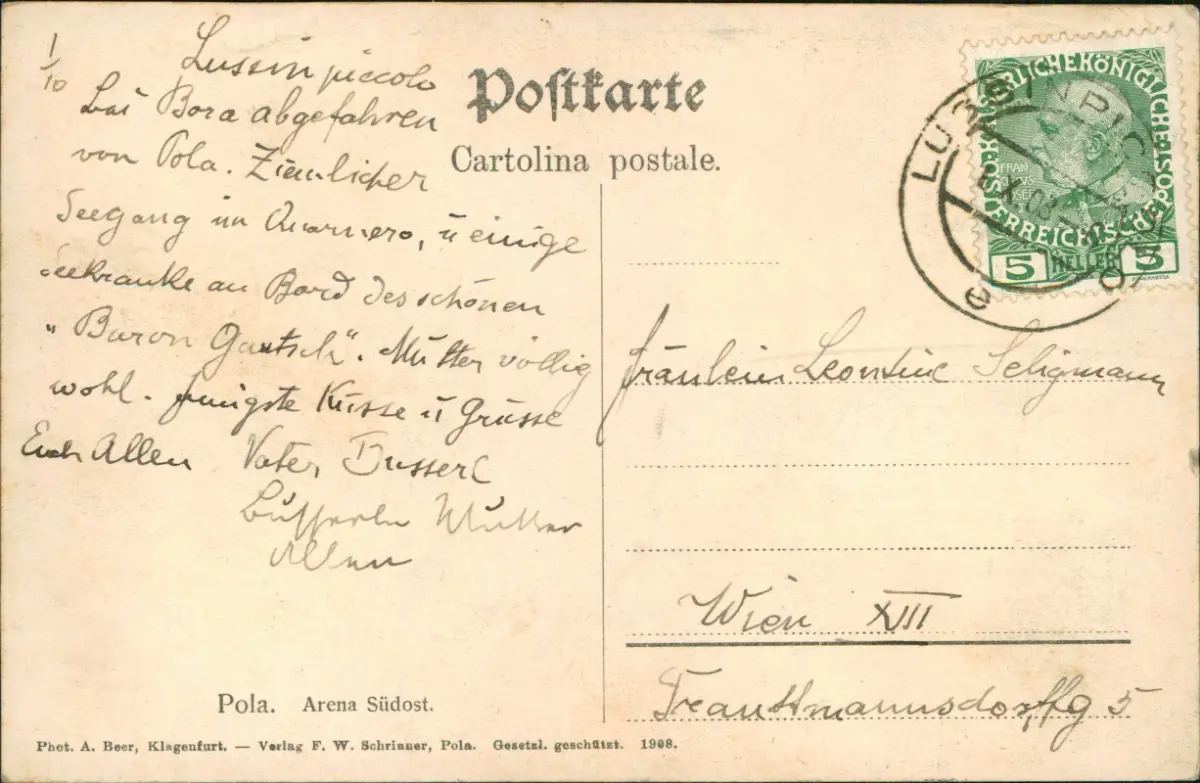 1/10
Lussinpiccolo
bei Bora abgefahren
von Pola. Ziemlicher
Seegang im Quarnero, u einige
Seekranke an Bord des schönen
„Baron Gautsch“. Mutter völlig
wohl. Innigste Küsse u Grüsse
Euch Allen Vater, Busserl
Busserln Mutter
Allen
Postkarte
Cartolina postale.
KAISERLICHEKÖNIGLICHE POST
ÖSTERREICHISCHE
FRAN
5 HELLER 5
LUSSINPICCOLO
X 08
e
Fräulein Leontine Seligmann
Wien XIII
Trauttmannsdorffg 5
Pola. Arena Südost.
Phot. A. Beer, Klagenfurt. — Verlag F. W. Schrinner, Pola. Gesetzl. geschützt. 1908.